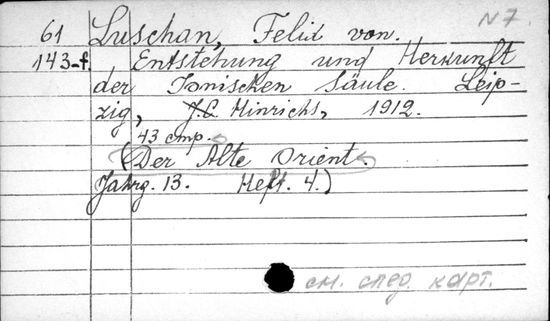 N 7.
61 Luschan, Felix von.
143-f. Entstehung und Herkunft
der Ionischen Säule. Leip-
zig, J.C. Hinrichs, 1912.
43 стр.
(Der Alte Orient.
Jahrg. 13. Heft. 4.)
см. след. карт.